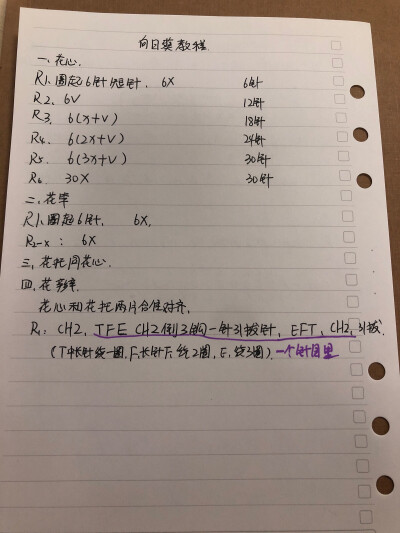 向日葵教程.
一、花心.
R1、圈起6针短针, 6X 6针
R2、6V 12针
R3、6(x+V) 18针
R4、6(2x+V) 24针
R5、6(3x+V) 30针
R6、30X 30针
二、花
R1、圈起6针, 6X,
R2-x: 6X
三、花托同花心.
四、花
花心和花托两片合住对齐,
R1: CH2, TFE CH2倒3钩一针引拔针, EFT, CH2, 引拔.
(T中长针绕一圈, F:长针F:绕2圈, E,绕3圈).一个针目里